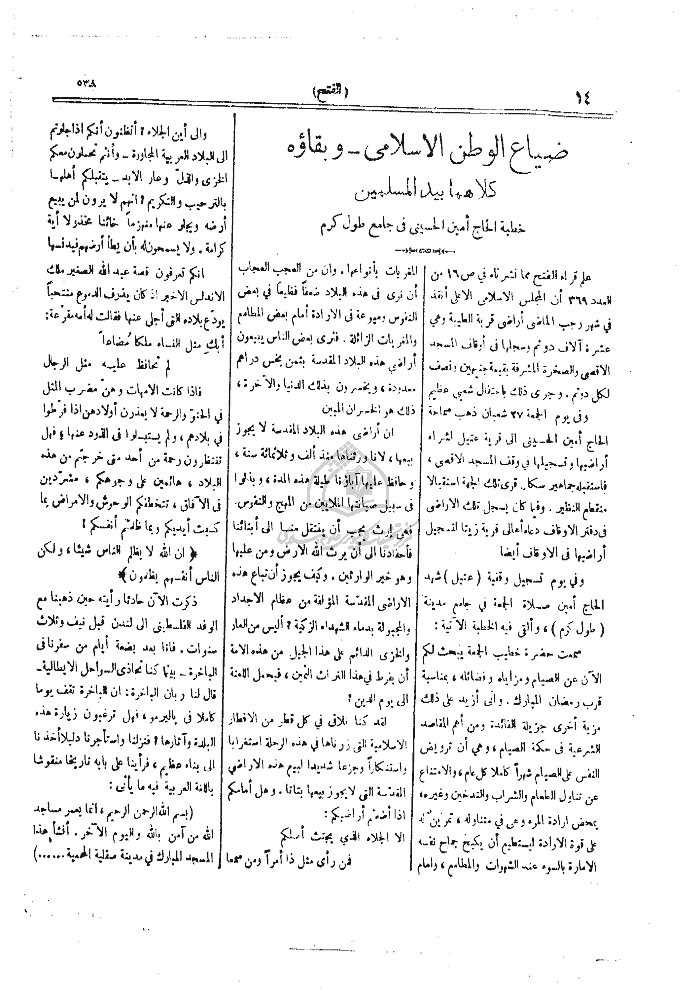 ١٤
(الفتح)
٥٣٨
ضياع الوطن الاسلامى ــ وبقاؤه
كلاهما بيد المسلمين
خطبة الحاج أمين الحسينى فى جامع طول كرم
علم قراء الفتح مما نشرناه فى ص ١٦ من
العدد ٣٦٩ أن المجلس الاسلامى الاعلى أنقذ
فى شهر رجب الماضى أراضى قرية الطيبة وهى
عشرة آلاف دونم وسجلها فى أوقاف المسجد
الاقصى والصخرة المشرفة بقيمة جنيهين ونصف
لكل دونم . وجرى ذلك باحتفال شعبى عظيم
وفى يوم الجمعة ٢٧ شعبان ذهب سماحة
الحاج أمين الحسينى الى قرية عتيل لشراء
أراضيها وتسجيلها فى وقف المسجد الاقصى ،
فاستقبله جماهير سكان قرى تلك الجهة استقبالا
منقطع النظير . وفيما كان يسجل تلك الاراضى
فى دفتر الاوقاف دعاه أهالى قرية زيتا لتسجيل
أراضيها فى الاوقاف أيضا
وفى يوم تسجيل وقفية ( عتيل ) شهد
الحاج أمين صلاة الجمعة فى جامع مدينة
( طول كرم ) ، وألقى فيه الخطبة الآتية :
سمعت حضرة خطيب الجمعة يبحث لكم
الآن عن الصيام ومزاياه وفضائله ، بمناسبة
قرب رمضان المبارك . وانى أزيد على ذلك
مزية أخرى جزيلة الفائدة ومن أهم المقاصد
الشرعية فى حكمة الصيام ، وهى أن ترويض
النفس على الصيام شهراً كاملا كل عام ، والامتناع
عن تناول الطعام والشراب والتدخين وغيره ،
بمحض ارادة المرء وهى فى متناوله ، تمرين له
على قوة الارادة ليستطيع أن يكبح جماح نفسه
الامارة بالسوء عند الشهوات والمطامع ، وامام
المغريات بأنواعها . وان من العجب العجاب
أن نرى فى هذه البلاد ضعفاً فظيعاً فى بعض
النفوس وميوعة فى الارادة أمام بعض المطامع
والمغريات الزائلة . فنرى بعض الناس يبيعون
أراضى هذه البلاد المقدسة بثمن بخس دراهم
معدودة ، ويخسرون بذلك الدنيا والآخرة ،
ذلك هو الخسران المبين
ان أراضى هذه البلاد المقدسة لا يجوز
بيعها ، لاننا ورثناها منذ ألف وثلاثمائة سنة ،
وحافظ عليها آباؤنا طيلة هذه المدة ، وبذلوا
فى سبيل صيانتها الملايين من المهج والنفوس.
فهى إرث يجب أن ينتقل منا الى أبنائنا
فأحفادنا الى أن يرث الله الارض ومن عليها
وهو خير الوارثين . وكيف يجوز أن تباع هذه
الاراضى المقدسة المؤلفة من عظام الاجداد
والمجبولة بدماء الشهداء الزكية ؟ أليس من العار
والخزى الدائم على هذا الجيل من هذه الامة
أن يفرط فى هذا التراث الثمين ، فيحمل اللعنة
الى يوم الدين ؟
لقد كنا نلاقى فى كل قطر من الاقطار
الاسلامية التى زرناها فى هذه الرحلة استغرابا
واستنكاراً وجزعا شديدا لبيع هذه الاراضى
المقدسة التى لا يجوز بيعها بتاتا . وهل أمامكم
اذا أضعتم أراضيكم :
الا الجلاء الذى يجتث أصلكم
فمن رأى مثل ذا أمراً ومن سمعا
والى أين الجلاء ؟ أتظنون أنكم اذا جلوتم
الى البلاد العربية المجاورة ــ وأنتم تحملون معكم
الخزى والذل وعار الابد ــ يتقبلكم أهلها
بالترحيب والتكريم ؟ انهم لا يرون لمن يبيع
أرضه ويجلو عنها منهزماً خائنا مخذولا أية
كرامة . ولا يسمحون له بأن يطأ أرضهم فيدنسها
انكم تعرفون قصة عبد الله الصغير ملك
الاندلس الاخير اذ كان يذرف الدموع منتحباً
يودّع بلاده التى أجلى عنها فقالت له أمه مقرّعة:
أبكِ مثل النساء ملكا مُضاعاً
لم تحافظ عليه مثل الرجال
فاذا كانت الامهات وهنّ مضرب المثل
فى الحنوّ والرحمة لا يعذرن أولادهن اذا فرّطوا
فى بلادهم ، ولم يستبسلوا فى الذود عنها ، فهل
تنتظرون رحمة من أحد متى خرجتم من هذه
البلاد ، هائمين على وجوهكم ، مشرّدين
فى الآفاق ، تتخطفكم الوحوش والامراض بما
كسبت أيديكم وبما ظلمتم أنفسكم ؟
﴿ ان الله لا يظلم الناس شيئا ، ولكن
الناس أنفسهم يظلمون﴾
ذكرت الآن حادثا رأيته حين ذهبنا مع
الوفد الفلسطينى الى لندن قبل نيف وثلاث
سنوات . فاننا بعد بضعة أيام من سفرنا فى
الباخرة ــ بينما كنا نحاذى السواحل الايطالية ــ
قال لنا ربان الباخرة : ان الباخرة تقف يوما
كاملا فى باليرمو ، فهل ترغبون زيارة هذه
البلدة وآثارها ؟ فنزلنا واستأجرنا دليلا أخذنا
الى بناء عظيم ، فرأينا على بابه تاريخا منقوشا
باللغة العربية فيه ما يأتى :
(بسم الله الرحمن الرحيم ، انما يعمر مساجد
الله من آمن بالله واليوم الآخر . أنشأ هذا
المسجد المبارك فى مدينة صقلية المحمية ......)